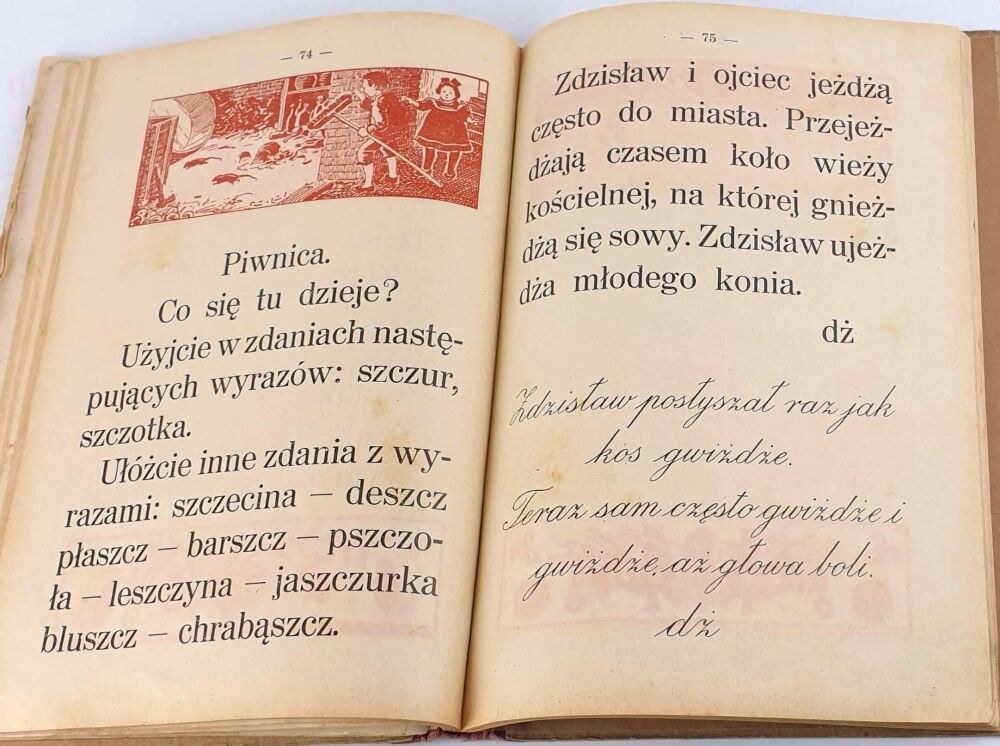 — 74 —
Piwnica.
Co się tu dzieje?
Użyjcie w zdaniach nastę-
pujących wyrazów: szczur,
szczotka.
Ułóżcie inne zdania z wy-
razami: szczecina — deszcz
płaszcz — barszcz — pszczo-
ła — leszczyna — jaszczurka
bluszcz — chrabąszcz.
— 75 —
Zdzisław i ojciec jeżdżą
często do miasta. Przejeż-
dżają czasem koło wieży
kościelnej, na której gnież-
dżą się sowy. Zdzisław ujeż-
dża młodego konia.
dż
Zdzisław posłyszał raz jak
kos gwiżdże.
Teraz sam często gwiżdże i
gwiżdże, aż głowa boli.
dż